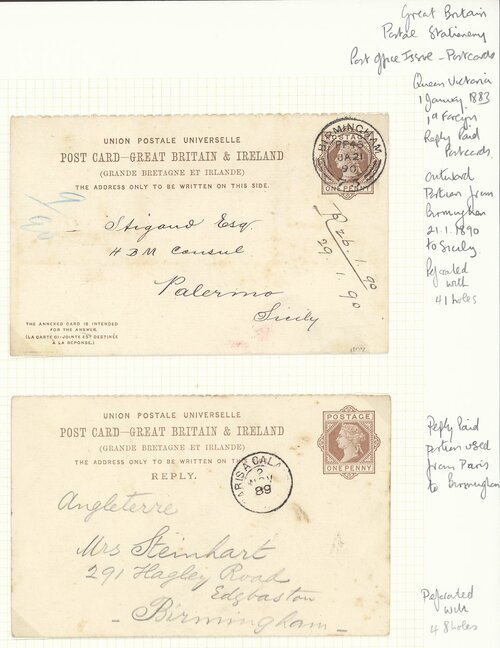 Great Britain
Postal Stationery
Post Office Issue - Postcards
Queen Victoria
1 January 1883
1d Foreign
Reply Paid
Postcards.
Outward
Portion from
Birmingham
21.1.1890
to Sicily.
Peforated
with
41 holes
UNION POSTALE UNIVERSELLE
POST CARD—GREAT BRITAIN & IRELAND
(GRANDE BRETAGNE ET IRLANDE)
THE ADDRESS ONLY TO BE WRITTEN ON THIS SIDE.
POSTAGE
ONE PENNY
BIRMINGHAM
JA 21
90
Stigand Esq.
HBM Consul
Palermo
Sicily
R 26.1.90
29.1.90
THE ANNEXED CARD IS INTENDED
FOR THE ANSWER.
(LA CARTE CI-JOINTE EST DESTINÉE
À LA RÉPONSE.)
UNION POSTALE UNIVERSELLE
POST CARD—GREAT BRITAIN & IRELAND
(GRANDE BRETAGNE ET IRLANDE)
THE ADDRESS ONLY TO BE WRITTEN ON THIS
REPLY.
POSTAGE
ONE PENNY
89
Angleterre
Mrs Steinhart
291 Hagley Road
Edgbaston
- Birmingham -
Reply Paid
portion used
from Paris
to Birmingham
Peforated
with
48 holes